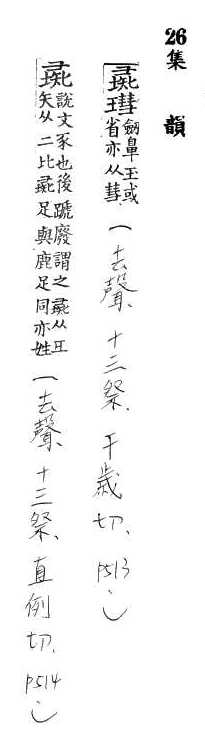 26集 韻
璏 劒鼻玉或
王彗 省亦从彗 (去聲、十三祭、于歲切、p513)
彘 說文豕也後蹏廢謂之彘从彑
矢从二匕彘足與鹿足同亦姓 (去聲、十三祭、直例切、p514)